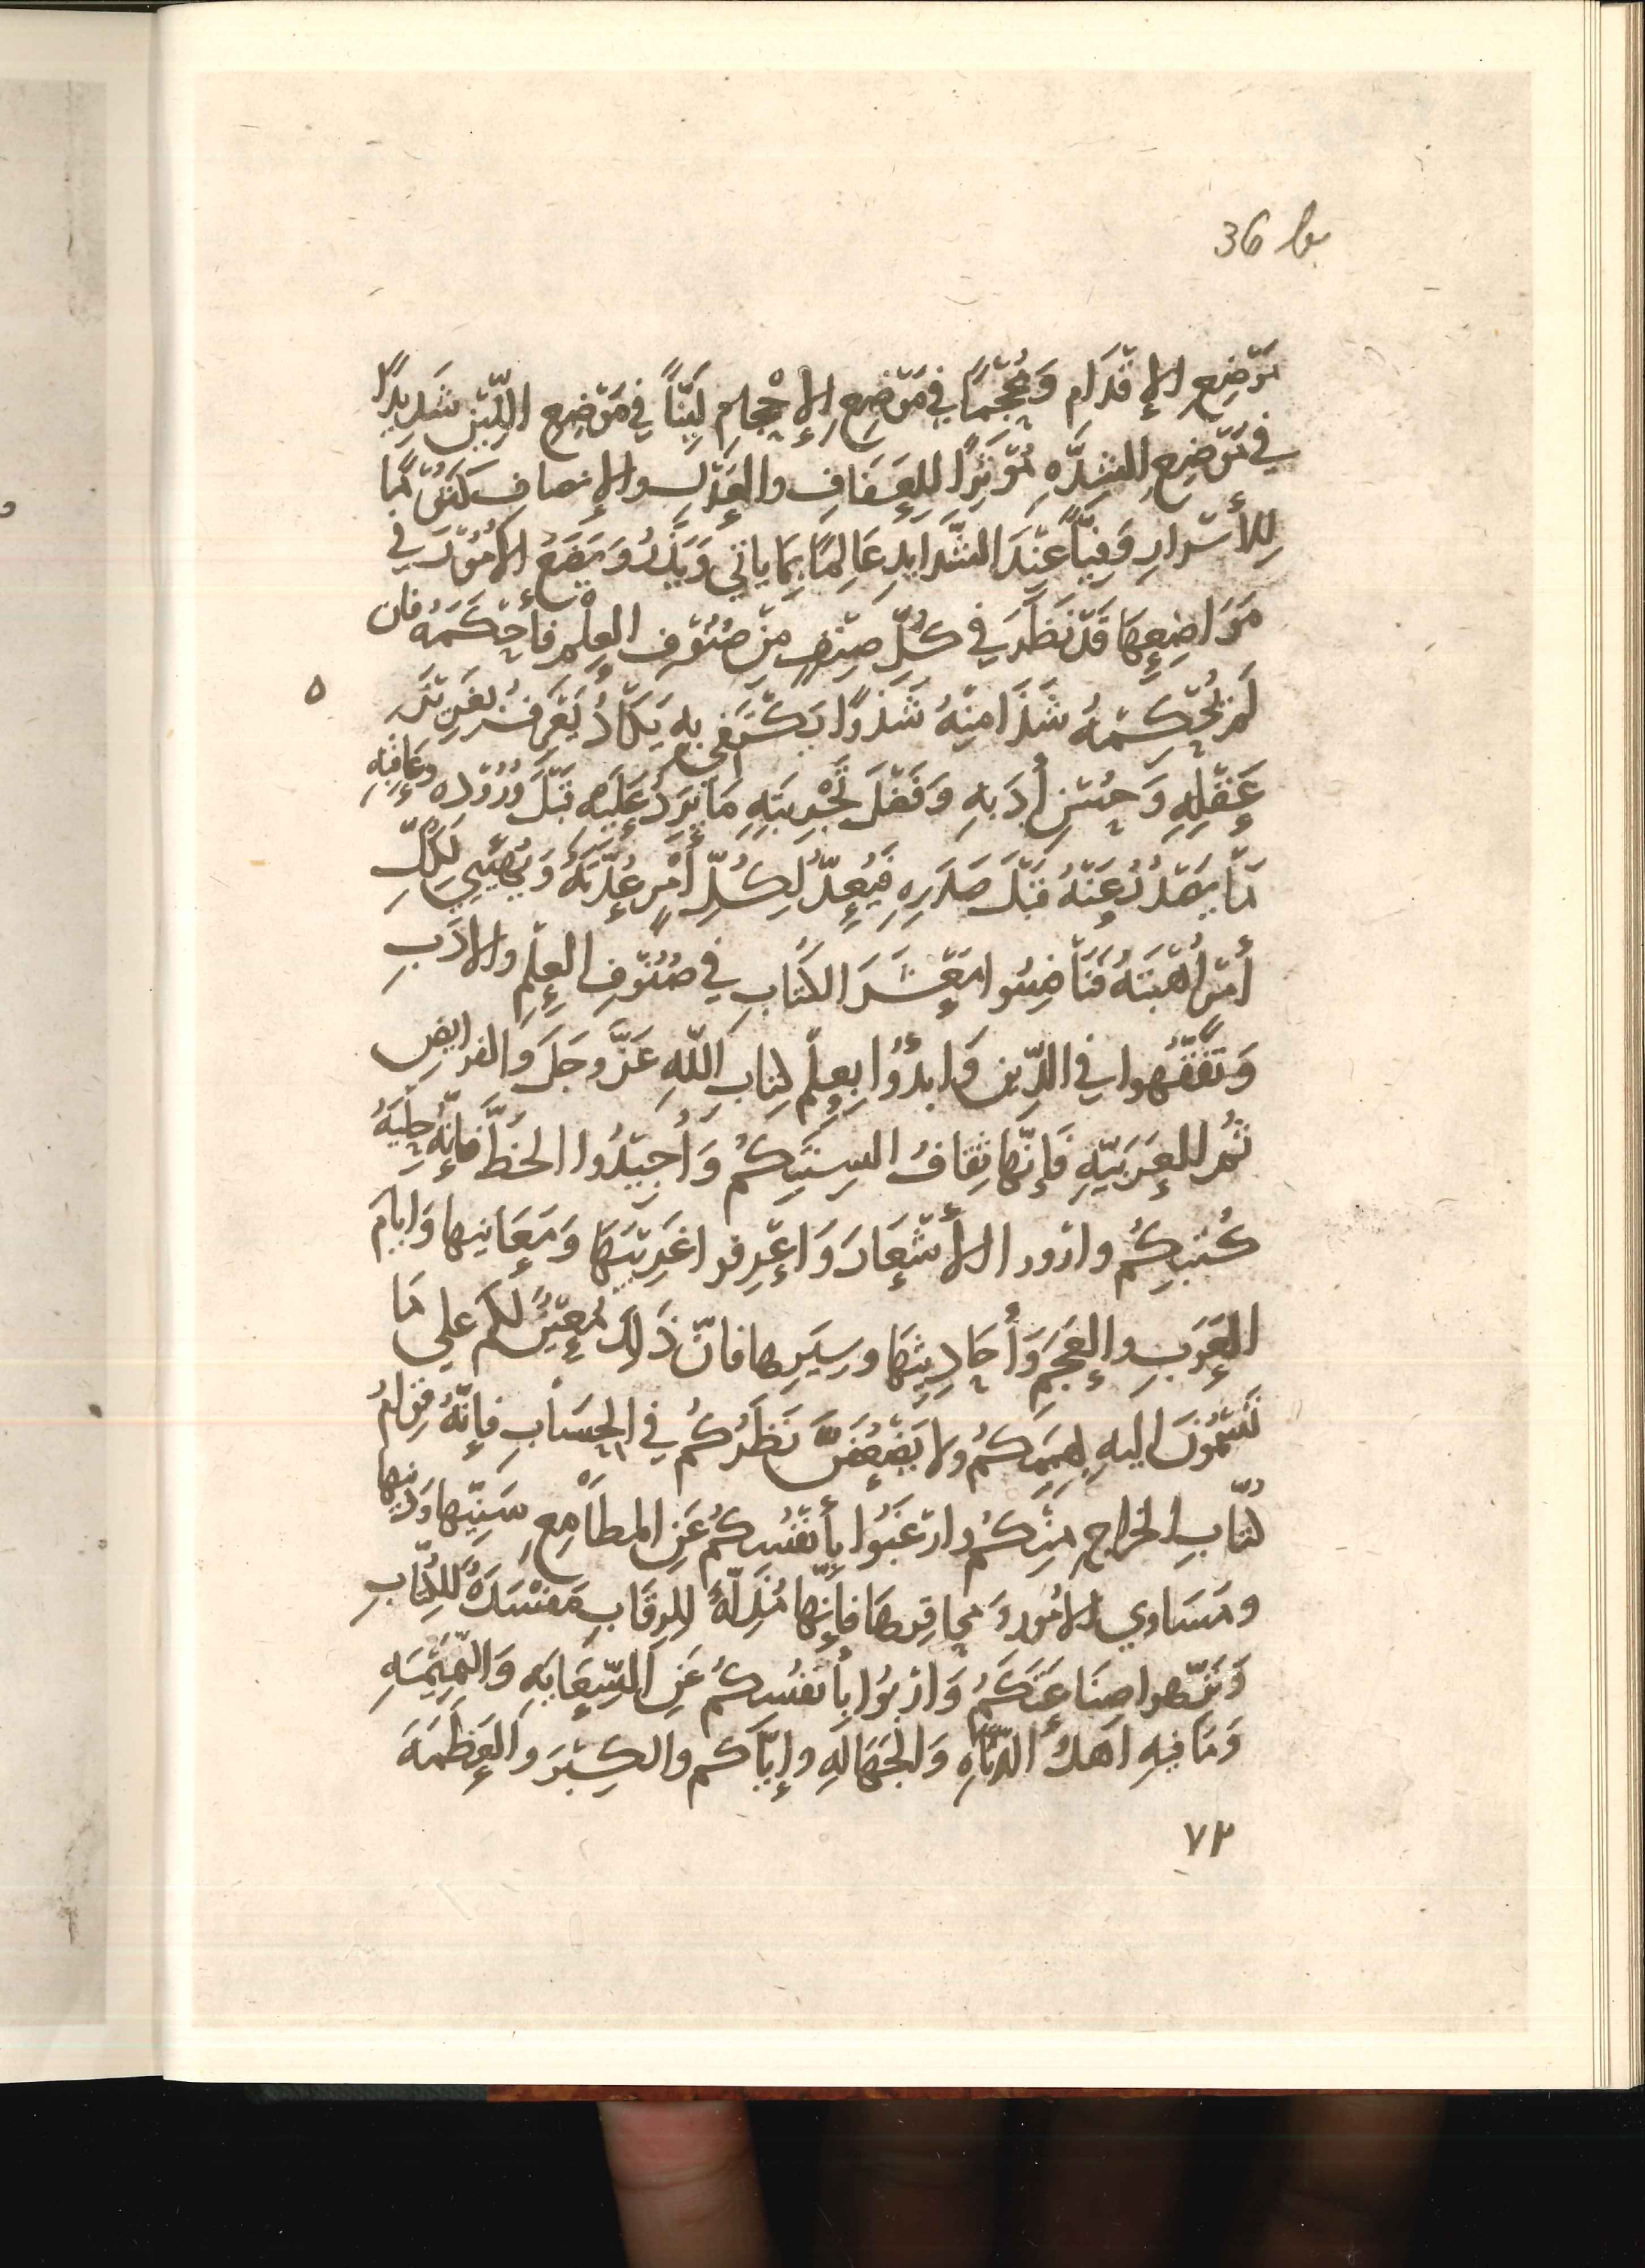 36 b
مَوْضِعِ الإِقْدَامِ وَمُحْجِمًا فِي مَوْضِعِ الإِحْجَامِ لَيِّنًا فِي مَوْضِعِ اللِّيْنِ شَدِيدًا
فِي مَوْضِعِ الشِّدَّهِ مُؤْثِرًا لِلعَفَافِ والعَدْلِ والإِنصافِ كَتُوْمًا
لِلأَسْرَارِ وَفِيًّا عِنْدَ الشَّدايدِ عَالِمًا بِمَا ياتي وَيَذَرُ وَيَضَعُ الأُمُوْرَ فِي
مَوَاضِعِهَا قَدْ نَظَرَ فِي كُلِّ صِنْفٍ مِنْ صُنُوْفِ العِلْمِ فأَحْكَمَهُ فان
لَمْ يُحْكِمْهُ شَذَا مِنْهُ شَذْوًا يَكْتَفِي بِهِ يَكَادُ يَعْرِفُ بغَرِيْزَهِ
عَقْلِهِ وَحُسْنِ أَدَبِهِ وَفَضْلِ تَجْرِبَتِهِ مَا يَرِدُ عَلَيْهِ قَبْلَ وُرُوْدِهِ وعَاقِبَهِ
مَا يَصْدُرُ عَنْهُ قَبْلَ صَدَرِهِ فَيُعِدُّ لِكُلِّ أَمْرٍ عُدَّتَهُ وَيُهَيِّي لِكُلِّ
أَمْرٍ أُهْبَتَهُ فَتَنَافَسُوا مَعْشَرَ الكُتَّابِ فِي صُنُوْفِ العِلْمِ والأدَبِ
وَتَفَقَّهُوا فِي الدِّينِ وَابدَؤُا بِعِلْمِ كِتَابِ اللَّهِ عَزَّ وجَلَّ وَالفرايضِ
ثُمَّ العَرَبِيّهِ فَإِنَّهَا ثِقَافُ السِنَتِكُمْ وَأَجِيْدُوا الخَطَّ فَإِنَّهُ حِلْيَهُ
كُتُبِكُمْ وارْوُوا الأَشْعَارَ وَاعْرِفُوا غَرِيْبَهَا وَمَعَانِيها وَايّامَ
العَرَبِ والعَجَمِ وَأَحَادِيثَهَا وسِيَرِها فانّ ذَلِكَ مُعِيْنٌ لكم علي مَا
تَسْمُوْنَ اليهِ بِهِمَمِكُمْ ولا يَضْعُفَنَّ نَظَرُكُمْ فِي الحِسَابِ فإِنَّهُ قِوَامُ
كُتّابِ الخراجِ مِنْكُمْ وارْغَبُوا بِأَنْفُسِكُمْ عَنِ المطَامِعِ سَنِيِّها وَدَنِيِّها
ومَسَاوي الأمُورِ وَمحاقِرِهَا فإِنَّهَا مُذِلَّةٌ للرِقَابِ مَفْسَدَهٌ للكُتّابِ
وَنَزِّهُوا صِنَاعَتَكُمْ وَارْبَؤُا بِأَنفُسِكُمْ عَنِ السِّعَايَهِ وَالنَّمِيْمَهِ
وَمَا فِيهِ اَهْلُ الدَّنَاءَهِ وَالجَهَالَهِ وإِيّاكم والكِبْرَ والعَظَمَهَ
٥
٧٢